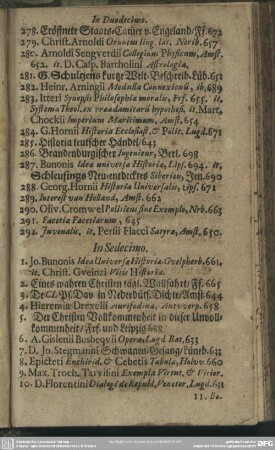 In Duodecimo.
278. Eröffnete Staats-Cantzley v. Engeland/ Ff. 672
279. Christ. Arnoldi Ornatum ling. lat. Norib. 657
280. Arnoldi Sengverdii Collegium Physicum, Amst.
652. it. D. Casp. Bartholini Astrologia,
281. G. Schultzens kurtze Welt-Beschreib. Lüb. 651
282. Heinr. Arningii Medulla Connexionũ, ib. 689
283. Itteri Synopsis Philosophiæ moralis, Frf. 655. it.
Systema Theol. ex præadamitarũ hypothesi, it. Marc.
Chockii Imperium Maritimum, Amst. 654
284. G. Hornii Historia Ecclesiast. & Polit. Lugd. 671
285. Historia teutscher Händel/ 643
286. Brandenburgischer Ingenieur, Berl. 698
287. Bunonis Idea universæ Historiæ, Lips. 694. it.
Schleusings Neu-entdecktes Siberien, Jen. 690
288. Georg. Hornii Historia Universalis, Lips. 671
289. Interest van Holland, Amst. 662
290. Oliv. Cromwel Politicus sine Exemplo, Nrb. 663
291. Facetiæ Facetiarum, 645
292. Juvenalis, it. Persii Flacci Satyræ, Amst. 650.
In Sedecimo.
1. Jo. Bunonis Idea Universæ Historiæ, Gvelpherb. 661,
it. Christ. Gveinzi Vitis Historia.
2. Eines wahren Christen tägl. Wallfahrt/ Ff. 665
4. Hieremiæ Drexelii Aurifodina, Antverp. 658
5. Der Christen Vollkommenheit in dieser Unvoll-
kommenheit/ Frf. und Leipzig 688
6. A. Gislenii Busbeqvii Opera, Lugd. Bat. 633
7. D. Jo. Stegmanni Schwanen-Gesang/ Lüneb. 633
8. Epicteti Enchirid. & Cebetis Tabula, Hafv. 660
9. Max. Troch. Tarvisini Exempla Virtut. & Vitior.
10. D. Florentini Dialogi de Republ. Venetor. Lugd. 631
11. Be-